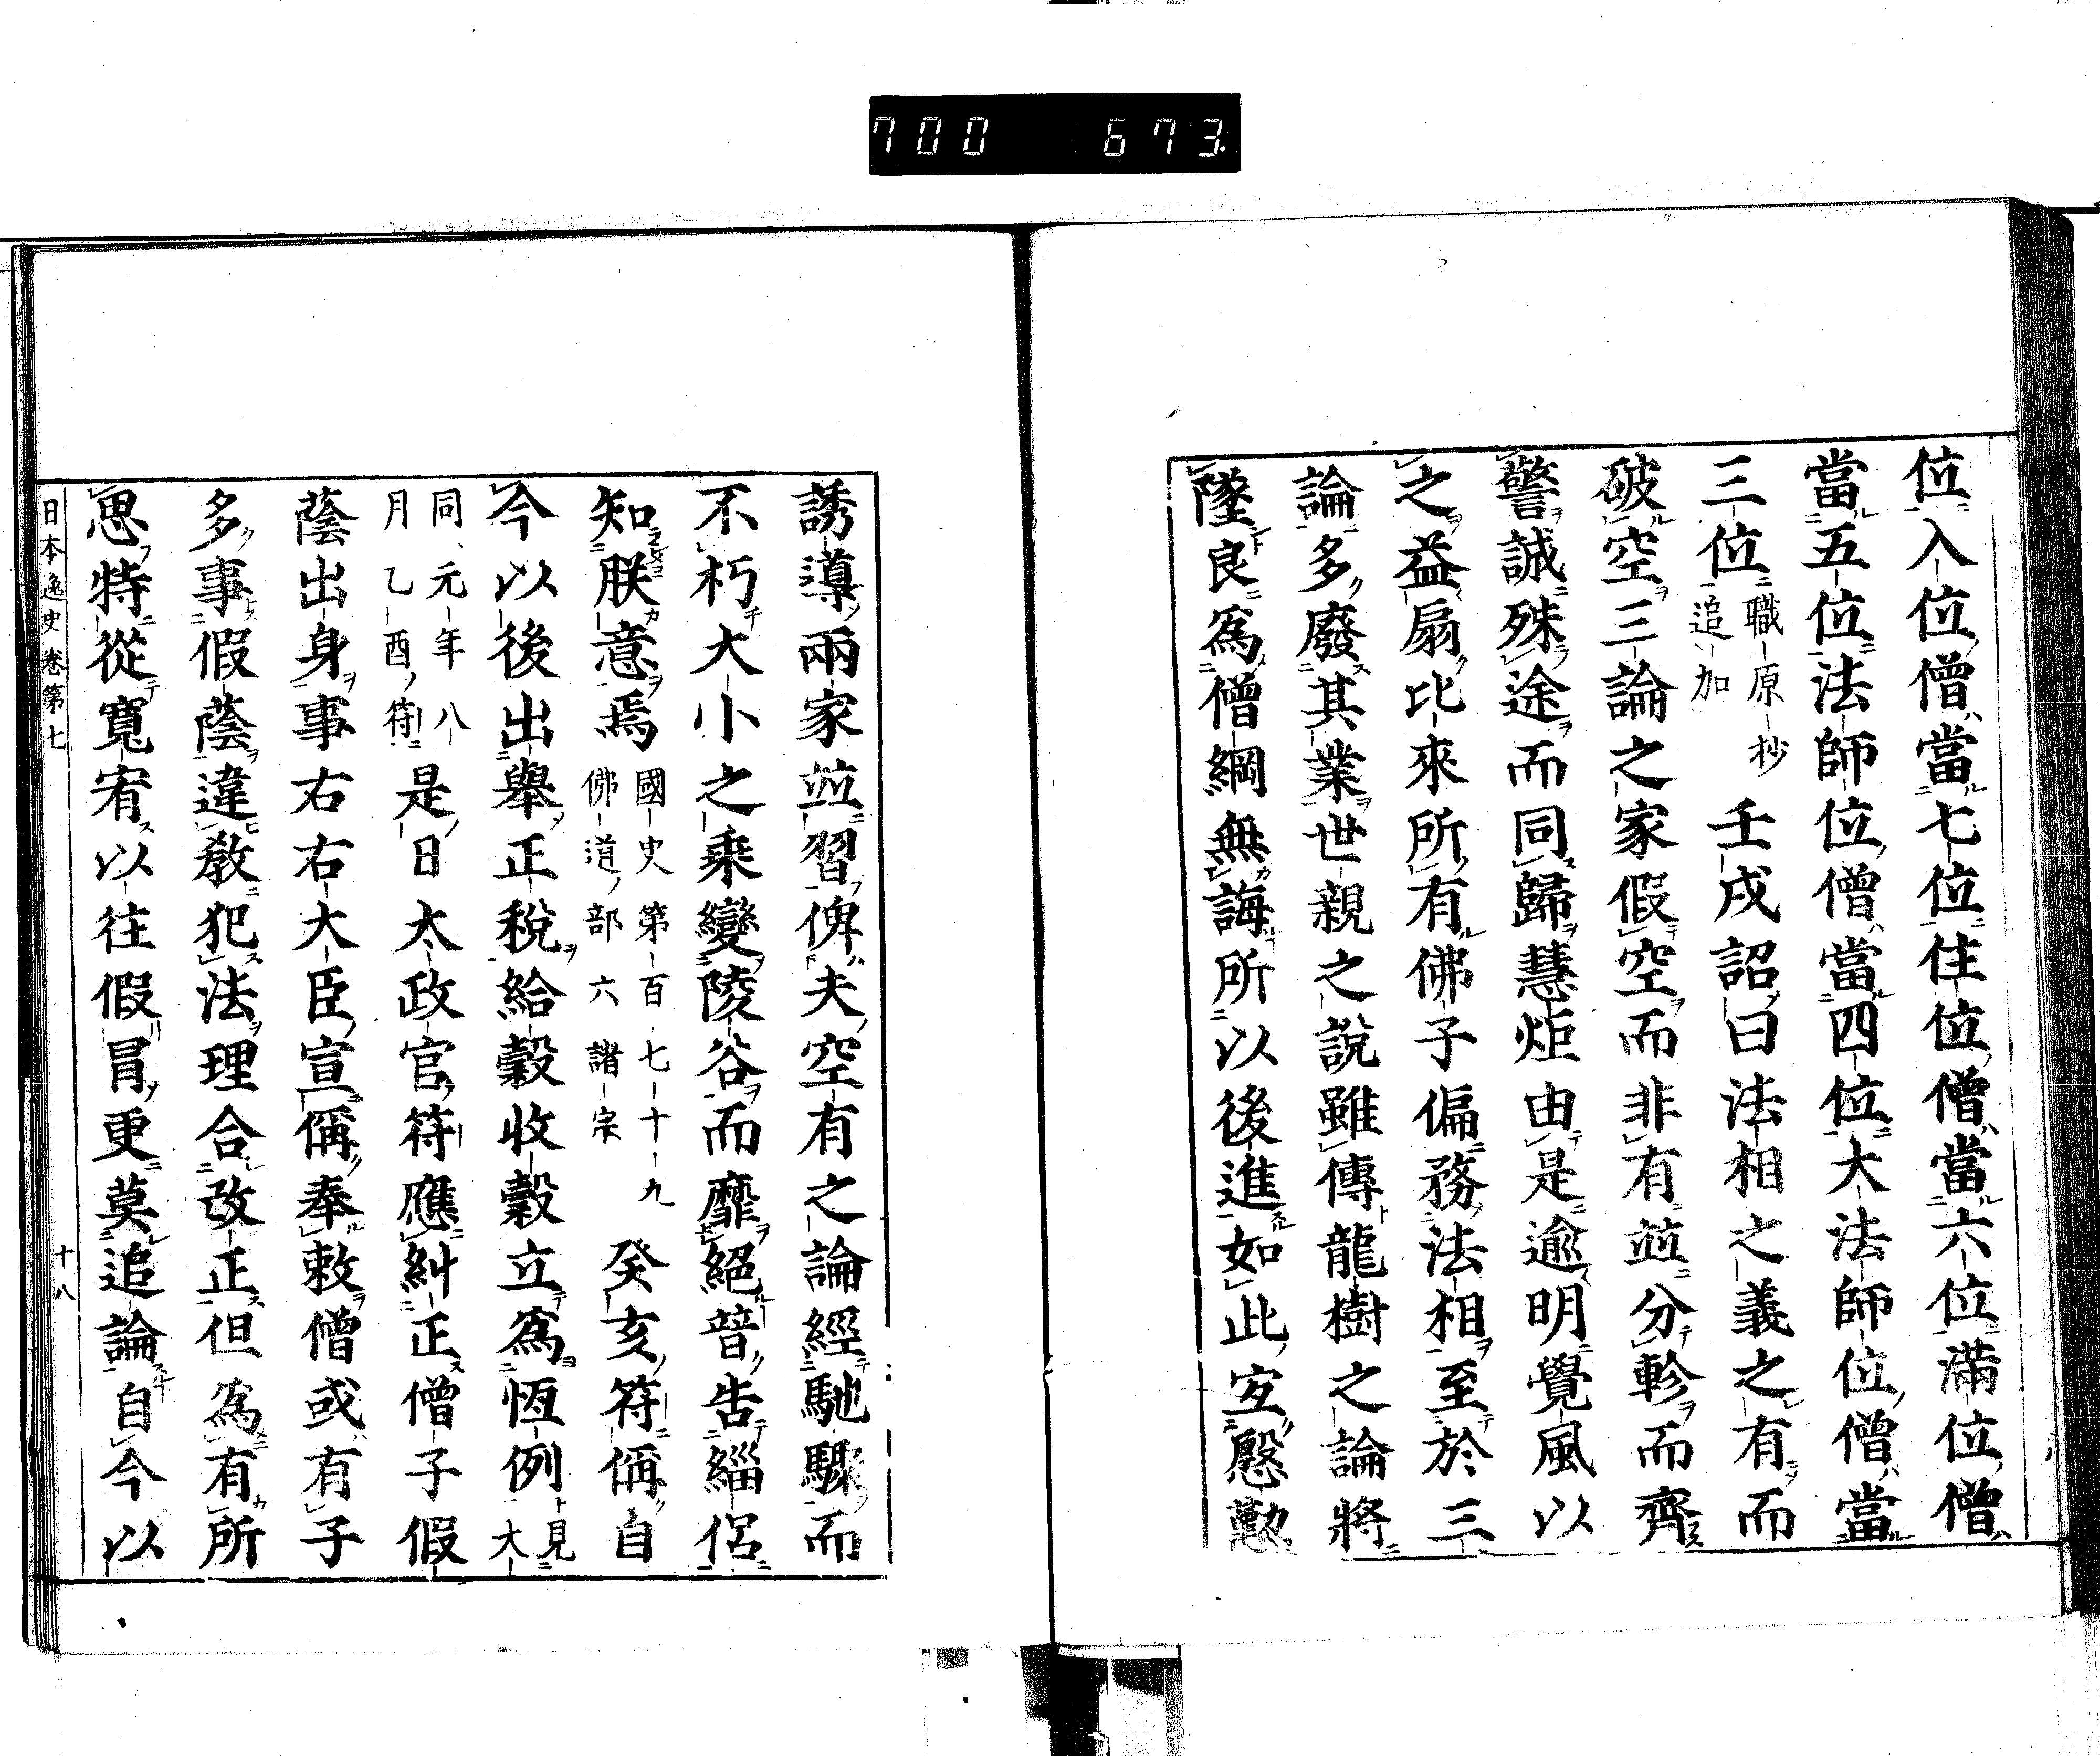 700 673
位入位僧當七位住位僧當六位滿位僧
當五位法師位僧當四位大法師位僧當
三位職原抄追加壬戌詔曰法相之義之有而
破空三論之家假空而非有竝分軫而齊
警誠殊途而同歸慧炬由是逾明覺風以
之益扇比來所有佛子偏務法相至於三
論多廢其業世親之說雖傳龍樹之論將
墜良爲僧綱無誨所以後進如此宜慇懃
誘導兩家竝習俾夫空有之論經馳驟而
不朽大小之乘變陵谷而靡絕普告緇侶
知朕意焉國史第百七十九佛道部六諸宗癸亥符偁自
今以後出舉正稅給穀收穀立爲恆例見大
同元年八月乙酉符是日太政官符應糾正僧子假
蔭出身事右右大臣宣偁奉敕僧或有子
多事假蔭違教犯法理合改正但爲有所
思特從寬宥以往假冒更莫追論自今以
日本逸史卷第七 十八